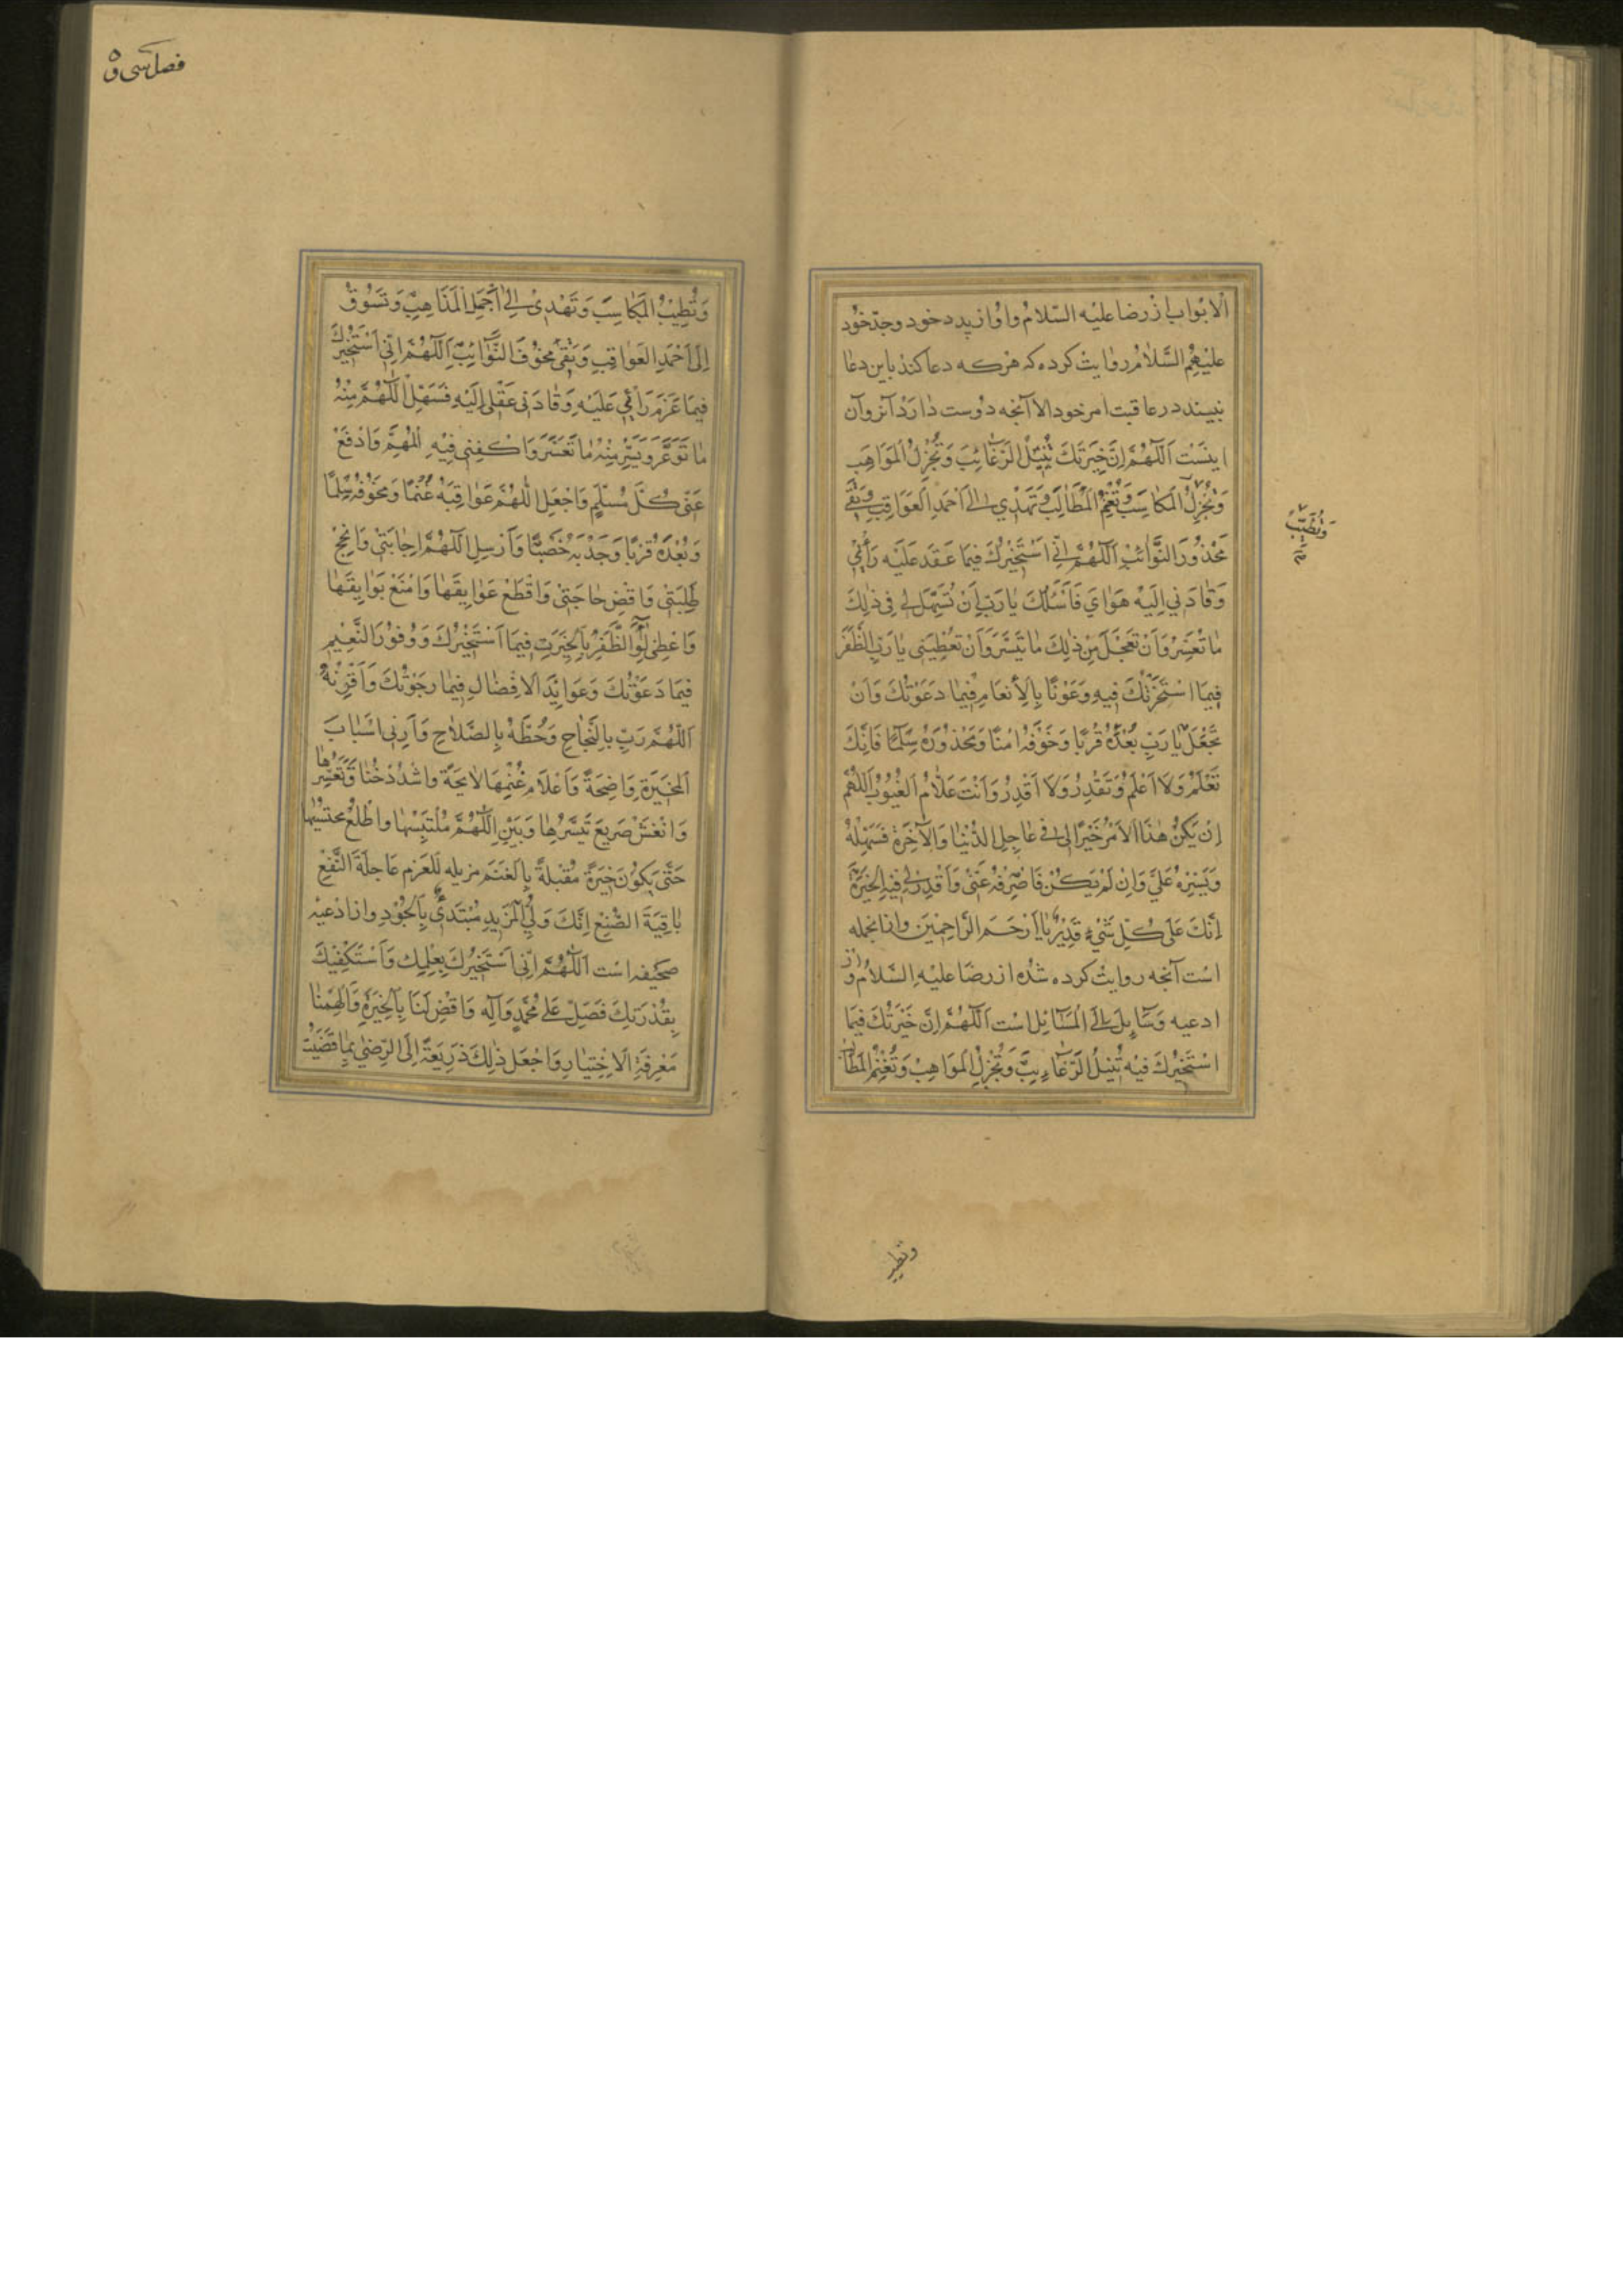 الابواب از رضا علیه السّلام و او از پدر خود و جدّ خود
علیهم السّلام روایت کرده که هرکه دعا کند باین دعا
نبیند در عاقبت امر خود الا آنچه دوست دارد آنرو آن
اینست اَللّهُمَّ اِنَّ خِيَرَتَكَ تُنيلُ الرَّغائِبَ وَتُجْزِلُ الْمَواهِبَ
وَتُجْزِلُ الْمَكاسِبَ وَتُغْنِمُ الْمَطالِبَ وَتَهْدي اِلى اَحْمَدِ الْعَواقِبِ وَتَقي
مَحْذُورَ النَّوائِبِ اَللّهُمَّ اِنّي اَسْتَخيرُكَ فيما عَقَدَ عَلَيْهِ رَأْيي
وَقادَني اِلَيْهِ هَوايَ فَاَسْئَلُكَ يا رَبِّ اَنْ تُسَهِّلَ لي في ذلِكَ
ما تَعَسَّرَ وَاَنْ تُعَجِّلَ مِنْ ذلِكَ ما تَيَسَّرَ وَاَنْ تُعْطِيَني يا رَبِّ الظَّفَرَ
فيما اسْتَخَرْتُكَ فيهِ وَعَوْنًا بِالْاِنْعامِ فيما دَعَوْتُكَ وَاَنْ
تَجْعَلَ يا رَبِّ بُعْدَهُ قُرْبًا وَخَوْفَهُ اَمْنًا وَمَحْذُورَهُ سِلْمًا فَاِنَّكَ
تَعْلَمُ وَلا اَعْلَمُ وَتَقْدِرُ وَلا اَقْدِرُ وَاَنْتَ عَلّامُ الْغُيُوبِ اَللّهُمَّ
اِنْ يَكُنْ هذَا الْاَمْرُ خَيْرًا لي في عاجِلِ الدُّنْيا وَالْآخِرَةِ فَسَهِّلْهُ
وَيَسِّرْهُ عَلَيَّ وَاِنْ لَمْ يَكُنْ فَاصْرِفْهُ عَنّي وَاقْدِرْ لي فيهِ الْخِيَرَةَ
اِنَّكَ عَلى كُلِّ شَيْءٍ قَديرٌ يا اَرْحَمَ الرّاحِمينَ و ازانجمله
است آنچه روایت کرده شده از رضا علیه السّلام و از
ادعیه وسائل الی المسائل است اَللّهُمَّ اِنَّ خِيَرَتَكَ فيما
اَسْتَخيرُكَ فيهِ تُنيلُ الرَّغائِبَ وَتُجْزِلُ الْمَواهِبَ وَتُغْنِمُ الْمَطالِبَ
وتطیب
فصل سی و ٥
وَتُطِيبُ الْمَكاسِبَ وَتَهْدي اِلى اَجْمَلِ الْمَذاهِبِ وَتَسُوقُ
اِلى اَحْمَدِ الْعَواقِبِ وَتَقي مَخُوفَ النَّوائِبِ اَللّهُمَّ اِنّي اَسْتَخيرُكَ
فيما عَزَمَ رَأْيي عَلَيْهِ وَقادَني عَقْلي اِلَيْهِ فَسَهِّلِ اللّهُمَّ مِنْهُ
ما تَوَعَّرَ وَيَسِّرْ مِنْهُ ما تَعَسَّرَ وَاكْفِني فيهِ الْمُهِمَّ وَادْفَعْ
عَنّي كُلَّ مُسْلِمٍ وَاجْعَلِ اللّهُمَّ عَواقِبَهُ غُنْمًا وَمَخُوفَهُ سِلْمًا
وَبُعْدَهُ قُرْبًا وَجَدْبَهُ خَصْبًا وَاَرْسِلِ اللّهُمَّ اِجابَتي وَانْجِحْ
طَلِبَتي وَاقْضِ حاجَتي وَاقْطَعْ عَوايِقَها وَامْنَعْ بَوايِقَها
وَاَعْطِني لِواءَ الظَّفَرِ بِالْخِيَرَةِ فيما اَسْتَخيرُكَ وَوُفُورَ النَّعيمِ
فيما دَعَوْتُكَ وَعَوايِدَ الْاِفْضالِ فيما رَجَوْتُكَ وَاَقْرِنْهُ
اللّهُمَّ رَبِّ بِالنَّجاحِ وَحُطَّهُ بِالصَّلاحِ وَاَرِني اَسْبابَ
الْخِيَرَةِ واضِحَةً وَاَعْلامَ غُنْمِها لايحَةً وَاشْدُدْ خُناقَ تَعَسُّرِها
وَانْعَشْ صَريعَ تَيَسُّرِها وَبَيِّنِ اللّهُمَّ مُلْتَبِسَها وَاطْلِعْ محتبسها
حَتّى يَكُونَ خِيَرَةً مُقْبِلَةً بِالْغُنْمِ مزیله للعزم عاجِلَةَ النَّفْعِ
باقِيَةَ الصُّنْعِ اِنَّكَ وَلِيُّ الْمَزيدِ مُبْتَدِئٌ بِالْجُودِ و از ادعیه
صحیفه است اَللّهُمَّ اِنّي اَسْتَخيرُكَ بِعِلْمِكَ وَاَسْتَكْفيكَ
بِقُدْرَتِكَ فَصَلِّ عَلى مُحَمَّدٍ وَآلِهِ وَاقْضِ لَنا بِالْخِيَرَةِ وَاَلْهِمْنا
مَعْرِفَةَ الْاِخْتِيارِ وَاجْعَلْ ذلِكَ ذَريعَةً اِلَى الرِّضى بِما قَضَيْتَ